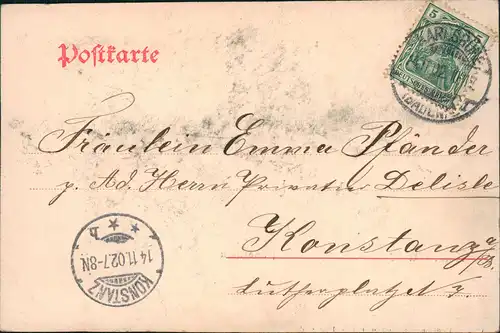 Postkarte
5
KARLSRUHE
(BADEN)
Fräulein Emma Pfänder
p. Ad. Herrn Privatier Delisle
Konstanz a/
Lutherplatz 7.
KONSTANZ
14.11.02.7-8N
b